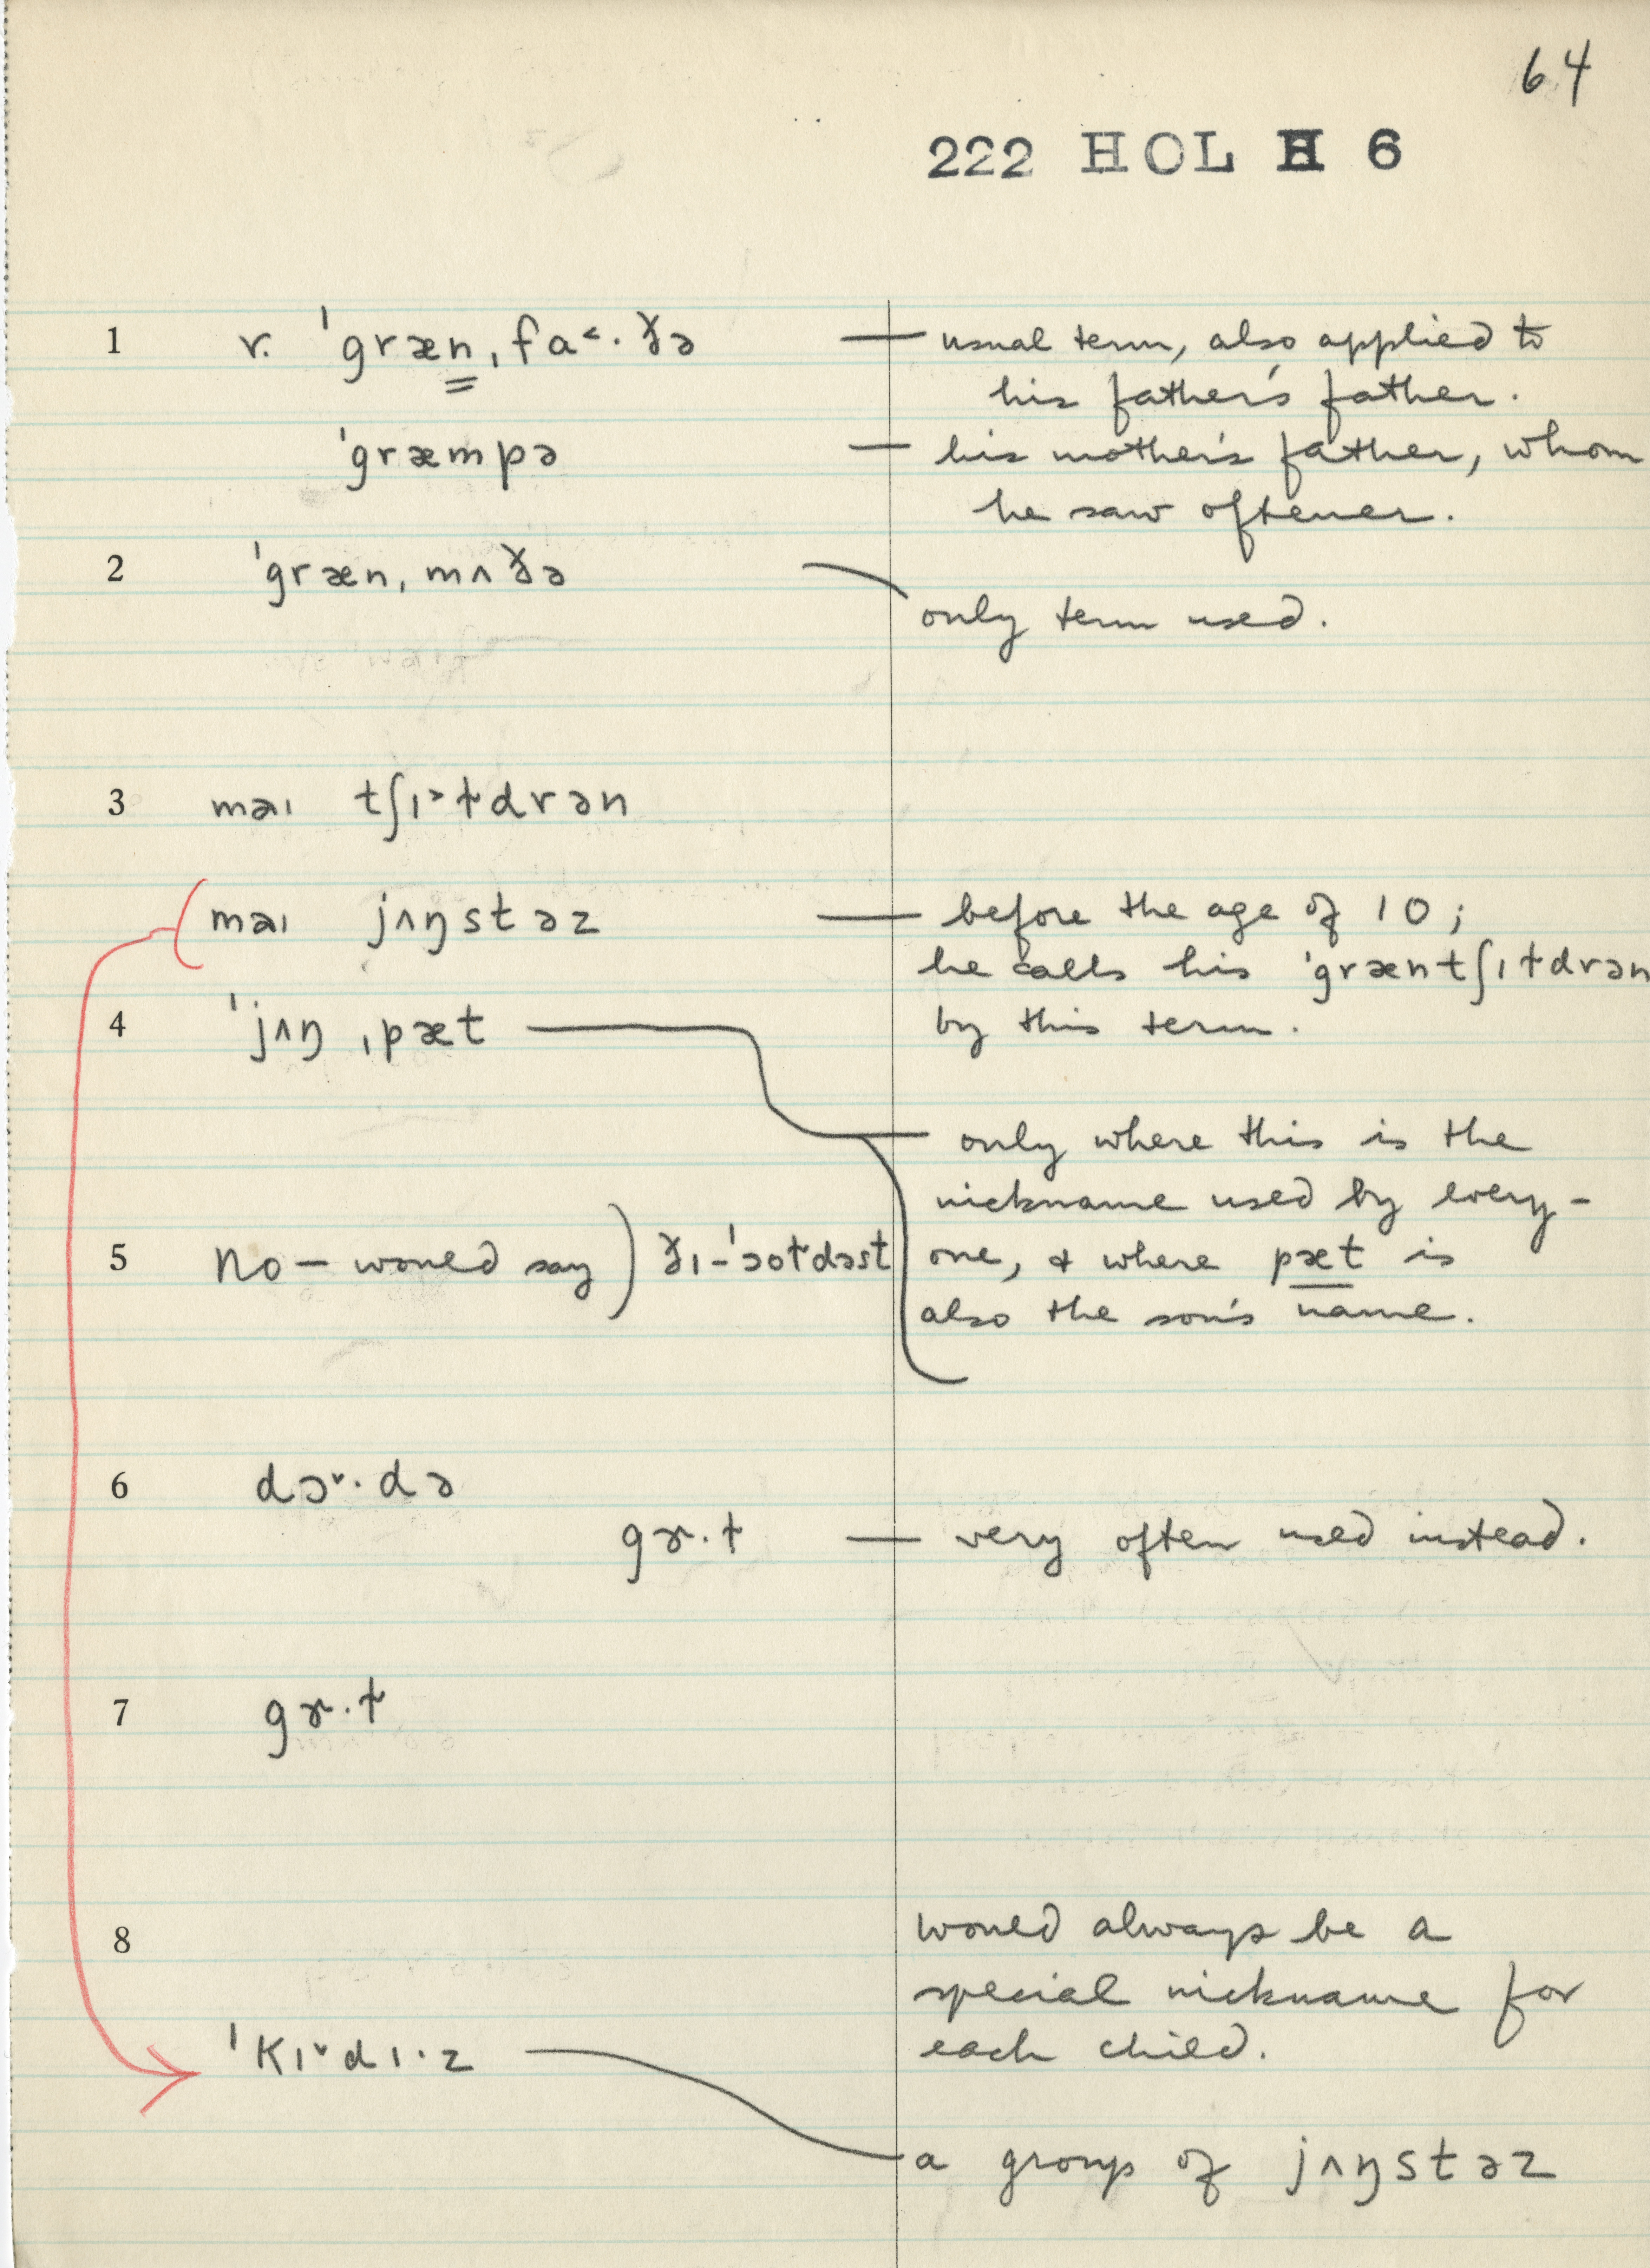 64
222 HOL H 6
1 r. ˈgræn̳ˌfa˂·ðə — usual term, also applied to
his father's father.
ˈgræmpə — his mother's father, whom
he saw oftener.
2 ˈgrænˌmʌðə
only term used.
3 məɪ tʃɪ˃ɫdrən
məɪ jʌŋstəz — before the age of 10;
he calls his ˈgræntʃɪɫdrən
4 ˈjʌŋ ˌpæt by this term.
— only where this is the
nickname used by every-
5 No — would say) ðɪ-ˈɔoɫdəst one, & where pæt is
also the son's name.
6 dɔ˅·də
gɤ·ɫ — very often used instead.
7 gɤ·ɫ
8 would always be a
special nickname for
ˈkɪ˅dɪ·z each child.
a group of jʌŋstəz